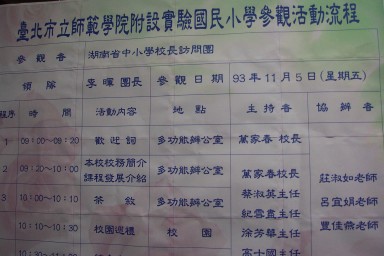 臺北市立師範學院附設實驗國民小學參觀活動流程
參觀者 湖南省中小學校長訪問團
領隊 李暉團長 參觀日期 93年11月5日(星期五)
程序 時間 活動內容 地點 主持者 協辦者
1 09:00~09:20 歡迎詞 多功能辦公室 萬家春校長
2 09:20~10:00 本校校務簡介 課程發展介紹 多功能辦公室 萬家春校長
3 10:00~10:10 茶敘 多功能辦公室 蔡淑英主任 莊淑如老師
紀雲盍主任 呂宜娟老師
10:10~10:30 校園巡禮 校園 徐芳華主任 豐佳燕老師
高士國主任